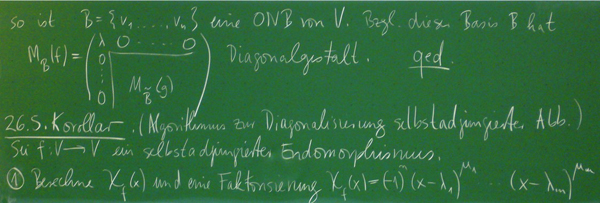 so ist B = {v₁, ..., vₙ} eine ONB von V. Bzgl. dieser Basis B hat
M_B(f) = ( λ 0 ..... 0 ; 0 ⋮ 0 M_B̃(g) ) Diagonalgestalt. qed.
26.5. Korollar. (Algorithmus zur Diagonalisierung selbstadjungierter Abb.)
Sei f: V → V ein selbstadjungierter Endomorphismus.
① Berechne χ_f(x) und eine Faktorisierung χ_f(x) = (-1)ⁿ (x-λ₁)^μ₁ ... (x-λₘ)^μₘ